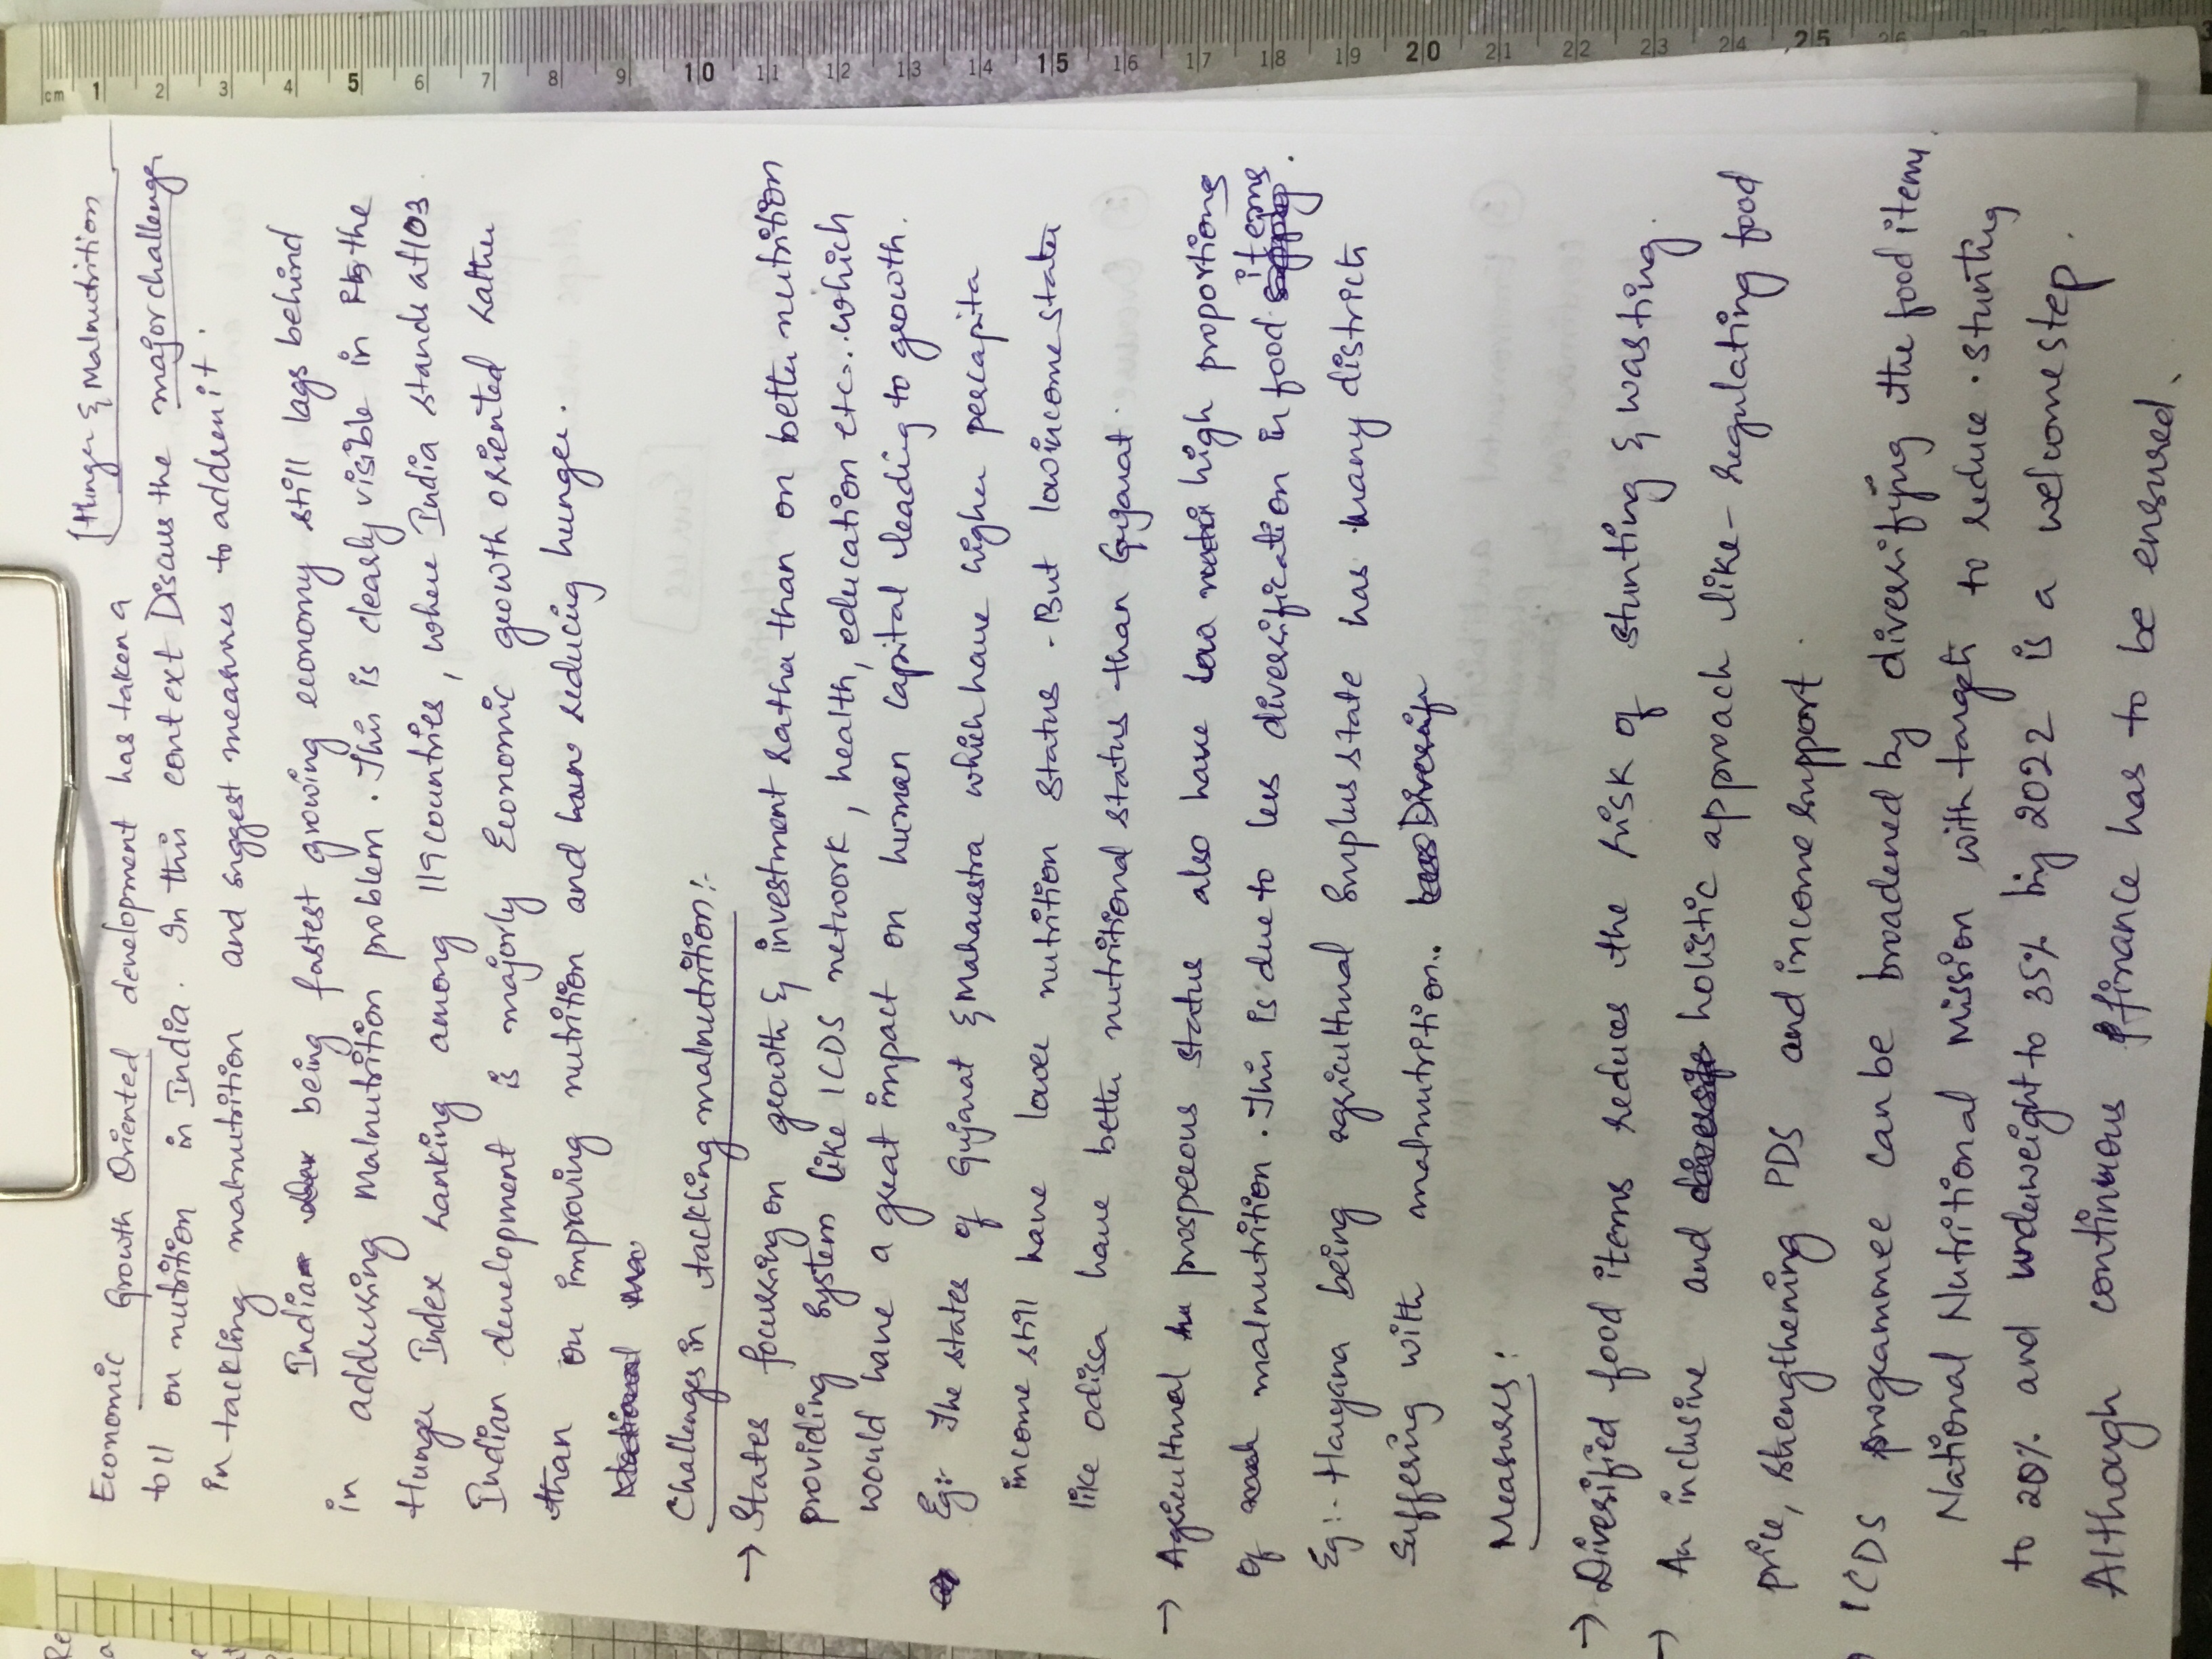 [Hunger & Malnutrition
Economic Growth Oriented development has taken a
toll on nutrition in India. In this context Discuss the major challenge
in tackling malnutrition and suggest measures to address it.
India being fastest growing economy still lags behind
in addressing Malnutrition problem. This is clearly visible in the
Hunger Index ranking among 119 countries, where India stands at 103
Indian development is majorly Economic growth oriented rather
than on improving nutrition and reducing hunger.
Challenges in tackling malnutrition:-
→ States focussing on growth & investment rather than on better nutrition
providing system like ICDS network, health, education etc. which
would have a great impact on human capital leading to growth.
Eg:- The states of Gujarat & Maharastra which have higher percapita
income still have lower nutrition status. But low income states
like odissa have better nutritional status than Gujarat.
→ Agricultural prosperous status also have high proportions
of malnutrition. This is due to less diversification in food items.
Eg:- Haryana being agricultural surplus state has many districts
suffering with malnutrition..
Measures:
→ Diversified food items reduces the risk of stunting & wasting.
→ An inclusive and holistic approach like - regulating food
price, strengthening PDS and income support.
ICDS programme can be broadened by diversifying the food item.
National Nutritional Mission with targets to reduce stunting
to 20% and underweight to 35% by 2022 is a welcome step.
Although continuous finance has to be ensured.
cm 1 2 3 4 5 6 7 8 9 10 11 12 13 14 15 16 17 18 19 20 21 22 23 24 25 26